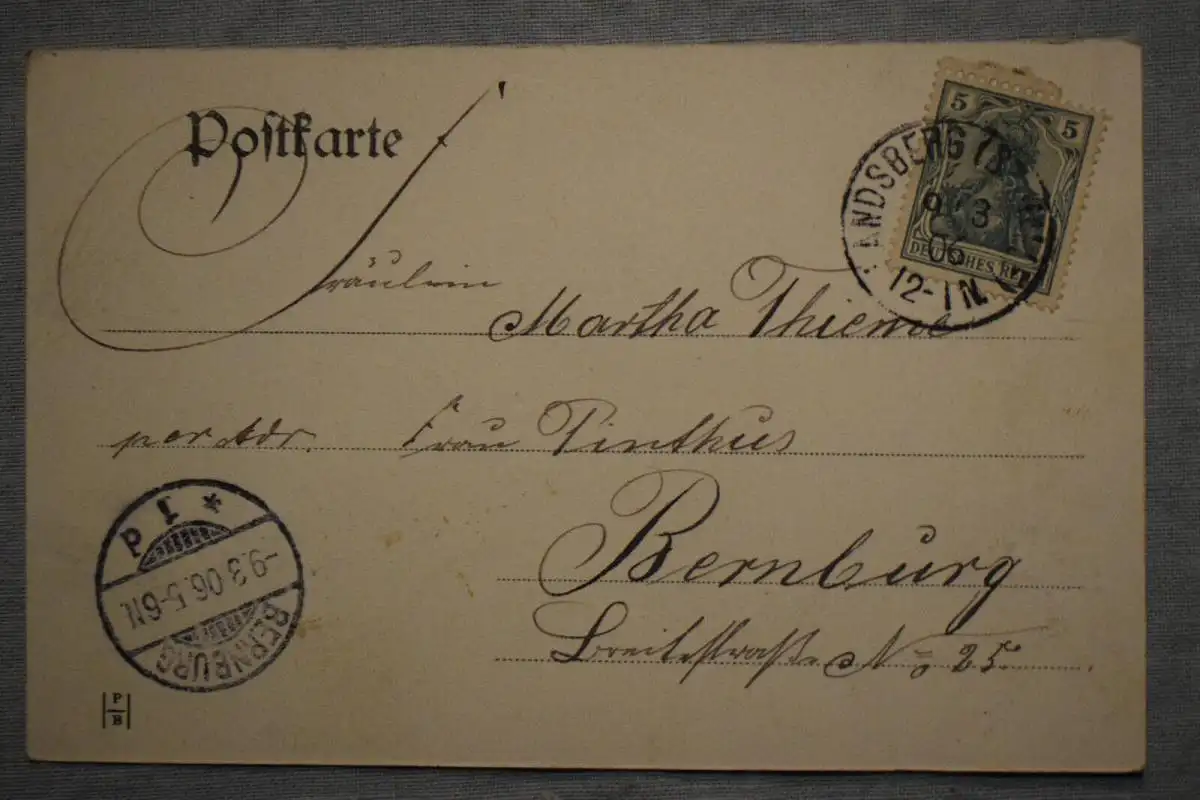 Postkarte
5 5
DEUTSCHES REI
LANDSBERG (B
9 3
06
12-1N.
Fräulein
Martha Thieme
per Adr. Frau Pinthus
Bernburg
Breitestraße No 25.
* 1 d
-9.3.06.5-6N.
BERNBURG
P
B